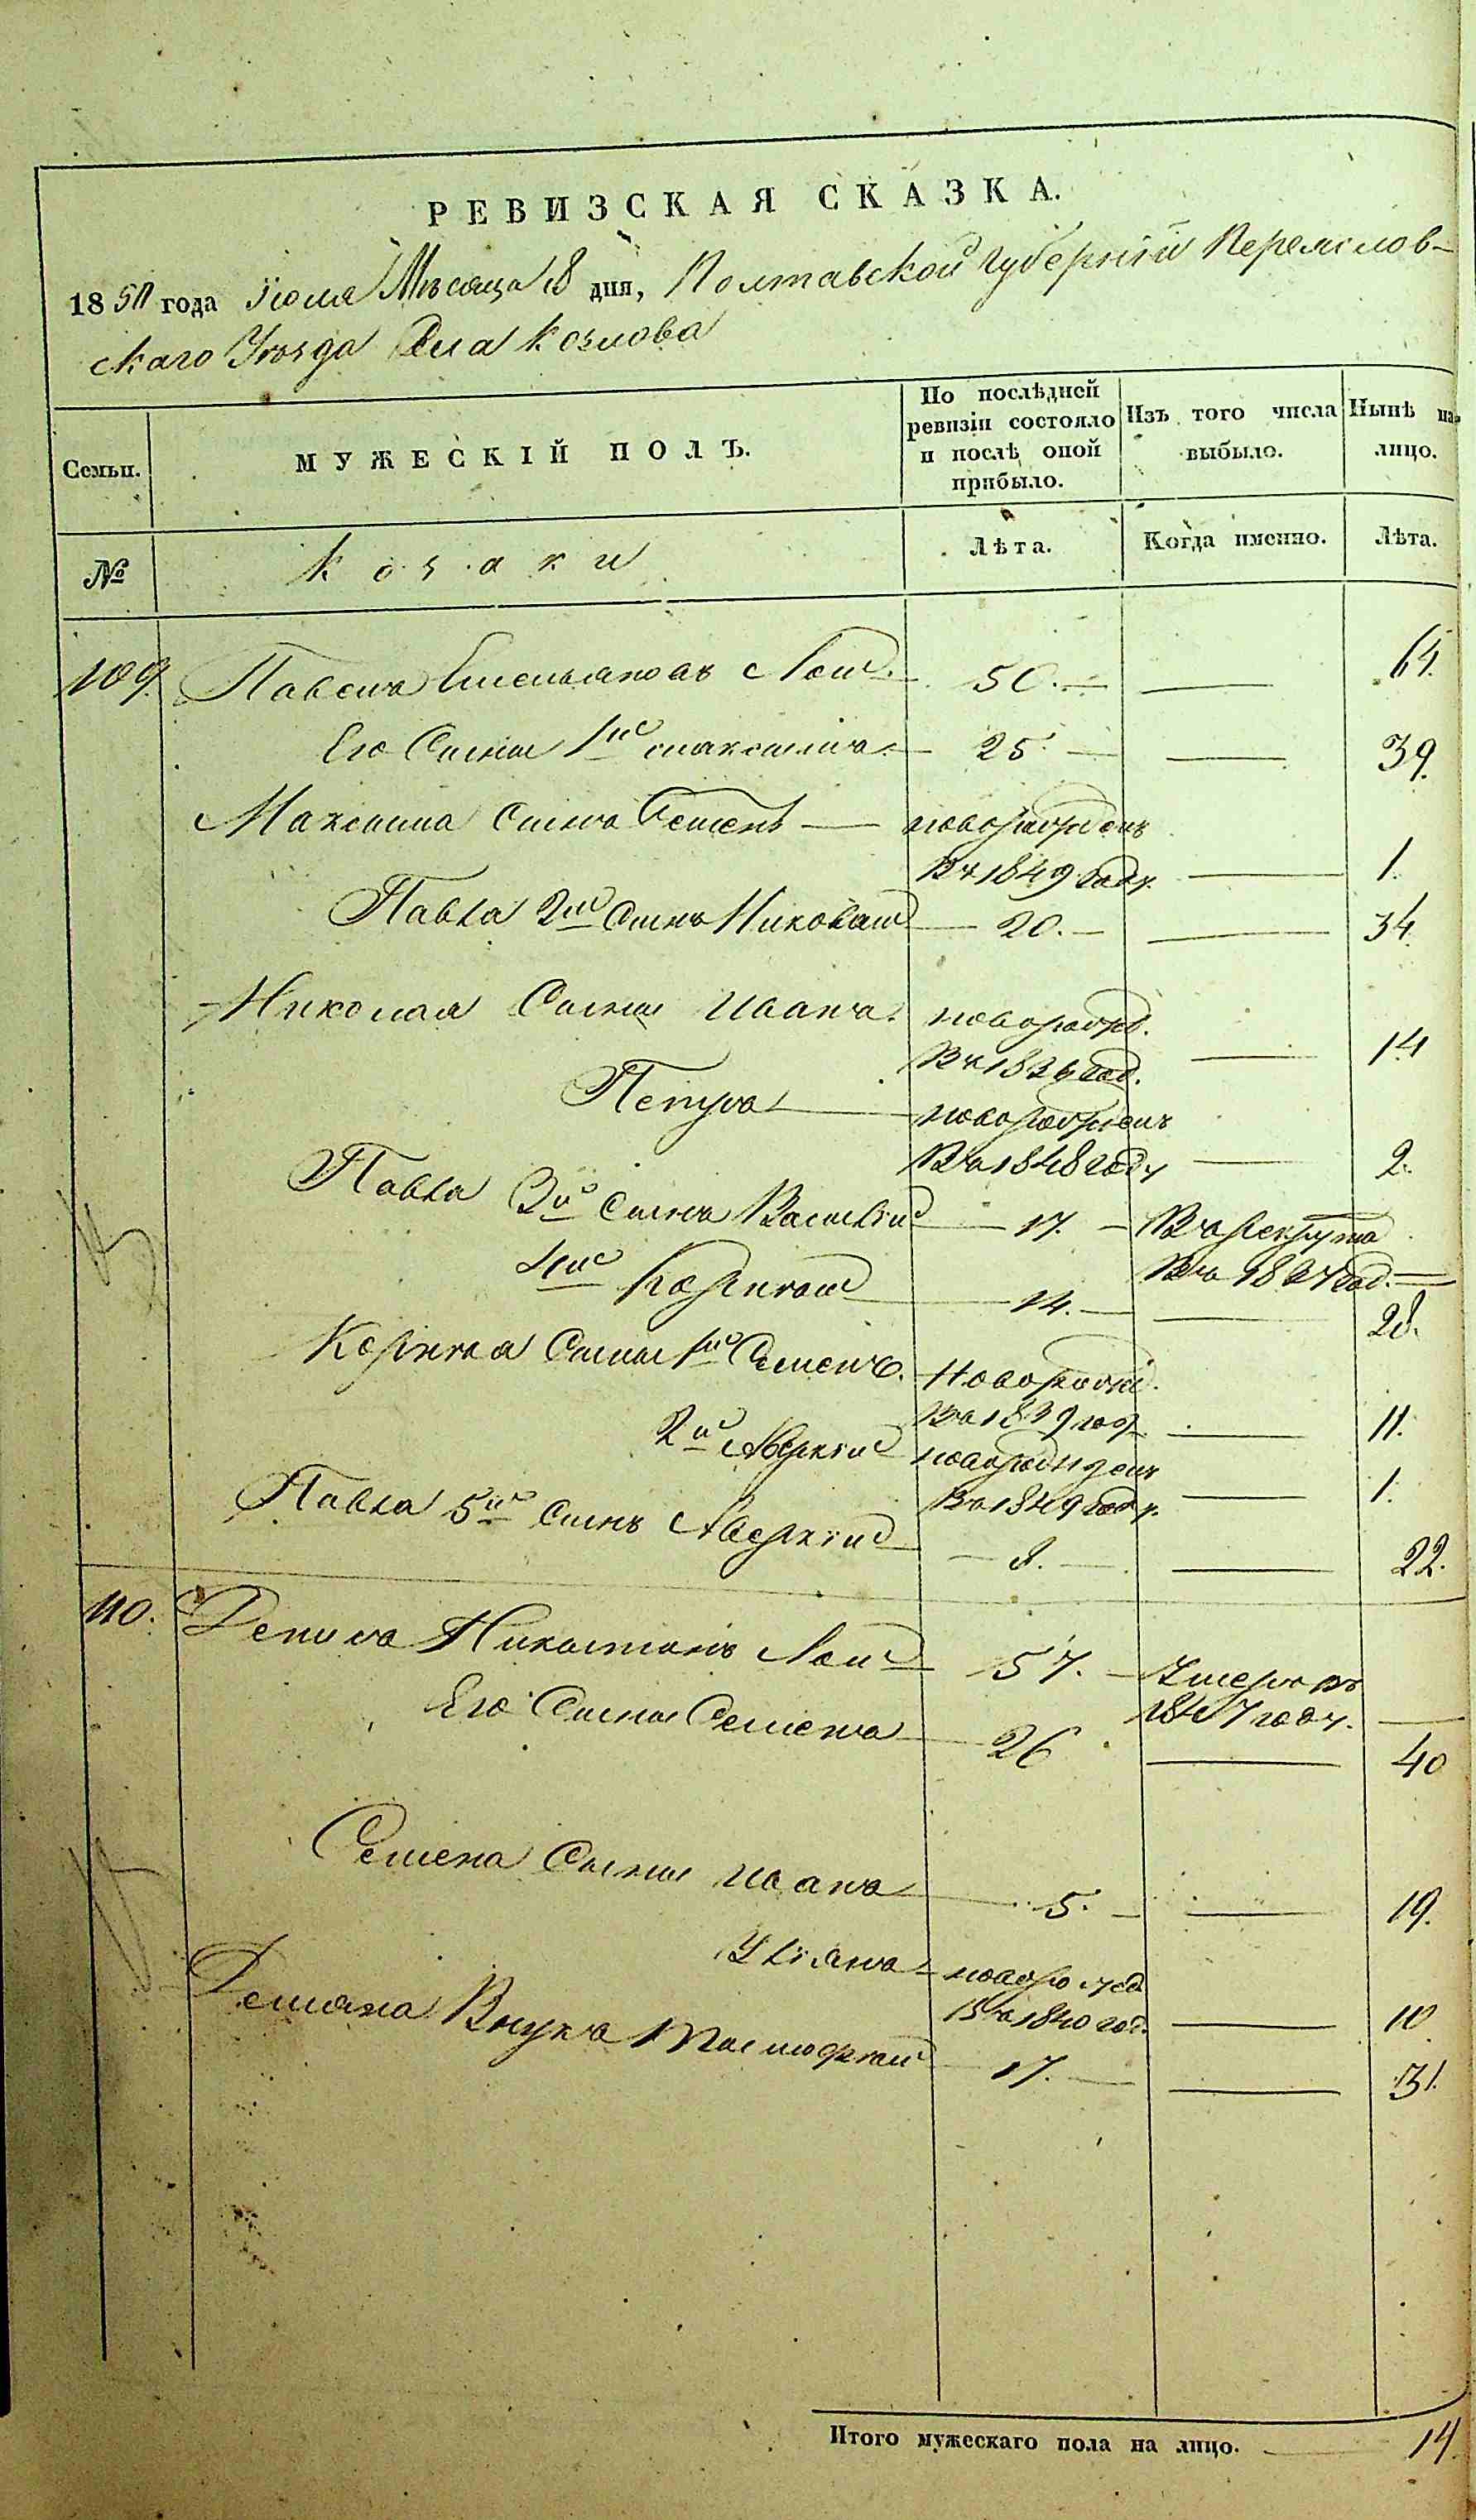 РЕВИЗСКАЯ СКАЗКА.
1850 года Іюля Мѣсяца 8 дня, Полтавской Губерніи Переяслов-
скаго Уѣзда Села Козлова
Семьи.
МУЖЕСКІЙ ПОЛЪ.
По послѣдней ревизіи состояло и послѣ оной прибыло.
Изъ того числа выбыло.
Нынѣ на лицо.
№
Козаки
Лѣта.
Когда именно.
Лѣта.
109. Павелъ Емельяновъ 50. 64.
Его Сыны 1й Максимъ 25. 39.
Максима Сынъ Семенъ новорожденъ
въ 1849 году. 1.
Павла 2й Сынъ Николай 20. 34.
Николая Сыны Иванъ новорожд.
въ 1836 год. 14
Петръ новорожденъ
въ 1848 году 2.
Павла 3й Сынъ Василій 17. въ рекрута
въ 18 год.
4й Корнѣй 14. 28.
Корнѣя Сыны 1й Семенъ. новорожд.
въ 1839 год. 11.
2й Аверкій новорожденъ
въ 1849 году. 1.
Павла 5й Сынъ Аверкій 8. 22.
110. Никитинъ 57. Умеръ въ
1847 году.
Его Сыны Семенъ 26 40
Семена Сыны Иванъ 5. 19.
Уліянъ новорожд.
въ 1840 год. 10
Внукъ Тимофей 17. 31.
Итого мужескаго пола на лицо. 14.